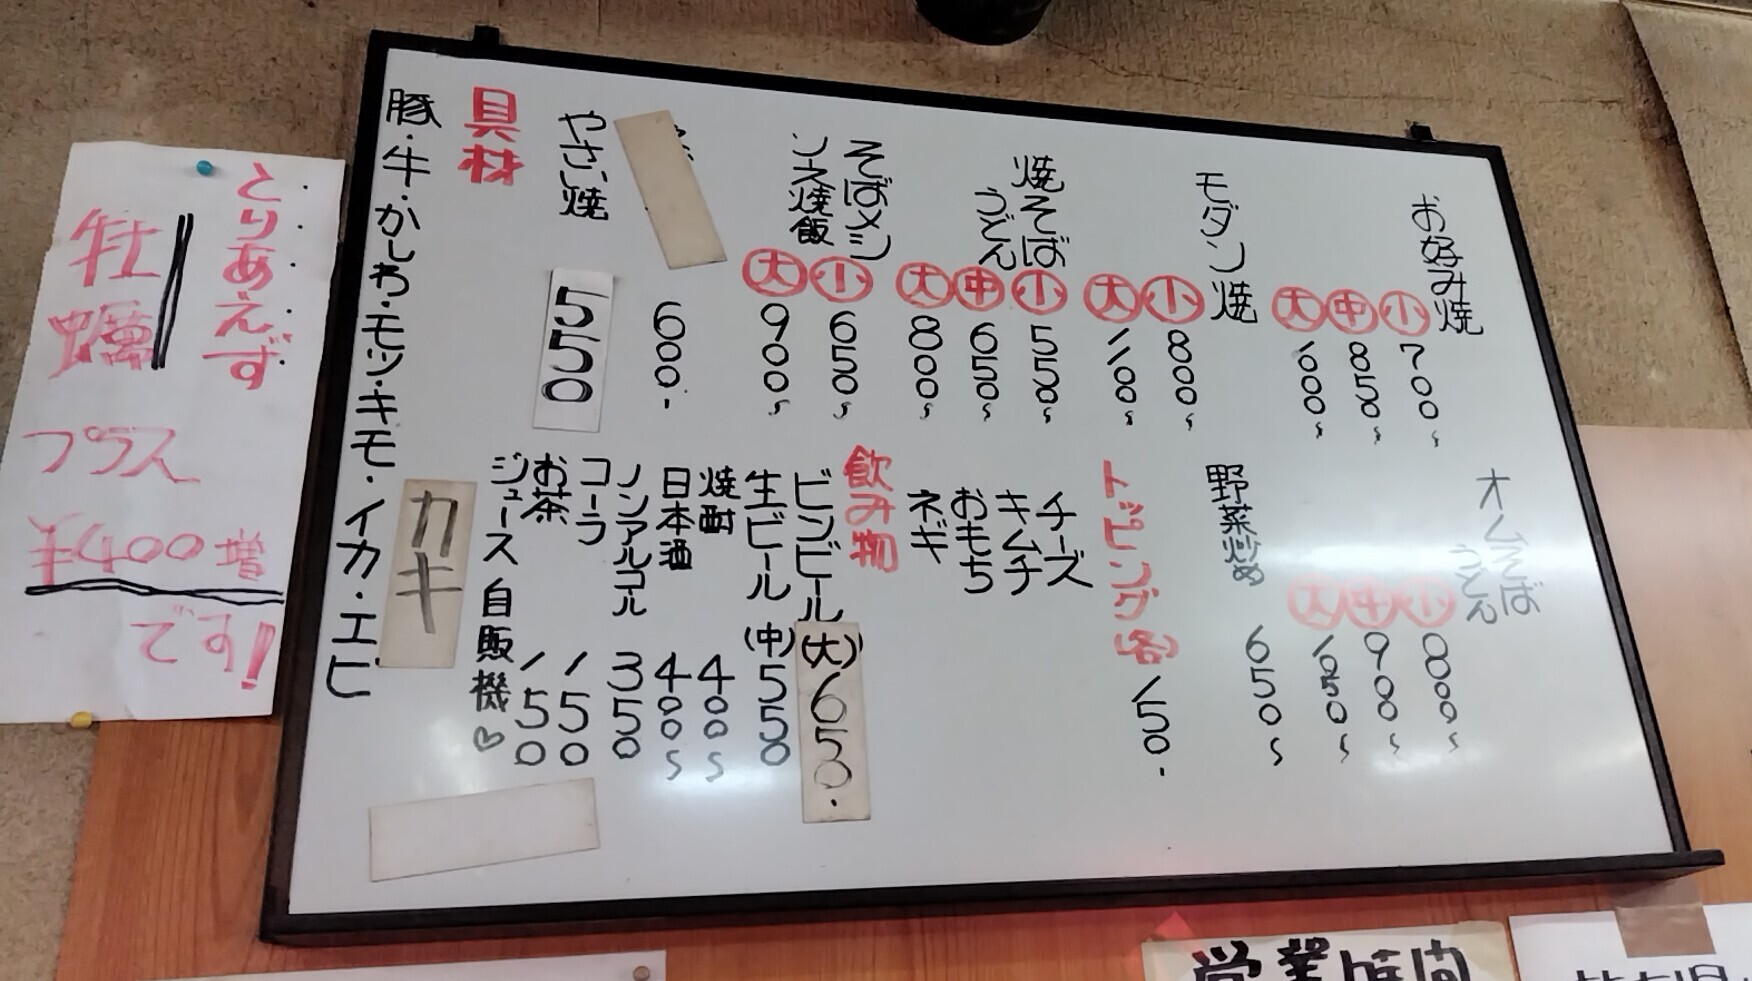 お好み焼
小 700~
中 850~
大 1000~
モダン焼
小 800~
大 1100~
焼そば
うどん
小 550~
中 650~
大 800~
そばメシ
ソース焼飯
小 650~
大 900~
600.
やさい焼
550
オムそば
うどん
小 800~
中 900~
大 1050~
野菜炒め 650~
トッピング(各) 150.
チーズ
キムチ
おもち
ネギ
飲み物
ビンビール(大) 650.
生ビール(中) 550
焼酎 400~
日本酒 400~
ノンアルコール 350
コーラ 150
お茶 150
ジュース 自販機♡
具材
豚・牛・かしわ・モツ・キモ・イカ・エビ
カキ
とりあえず
牡蠣
プラス
¥400増
です!
営業時間